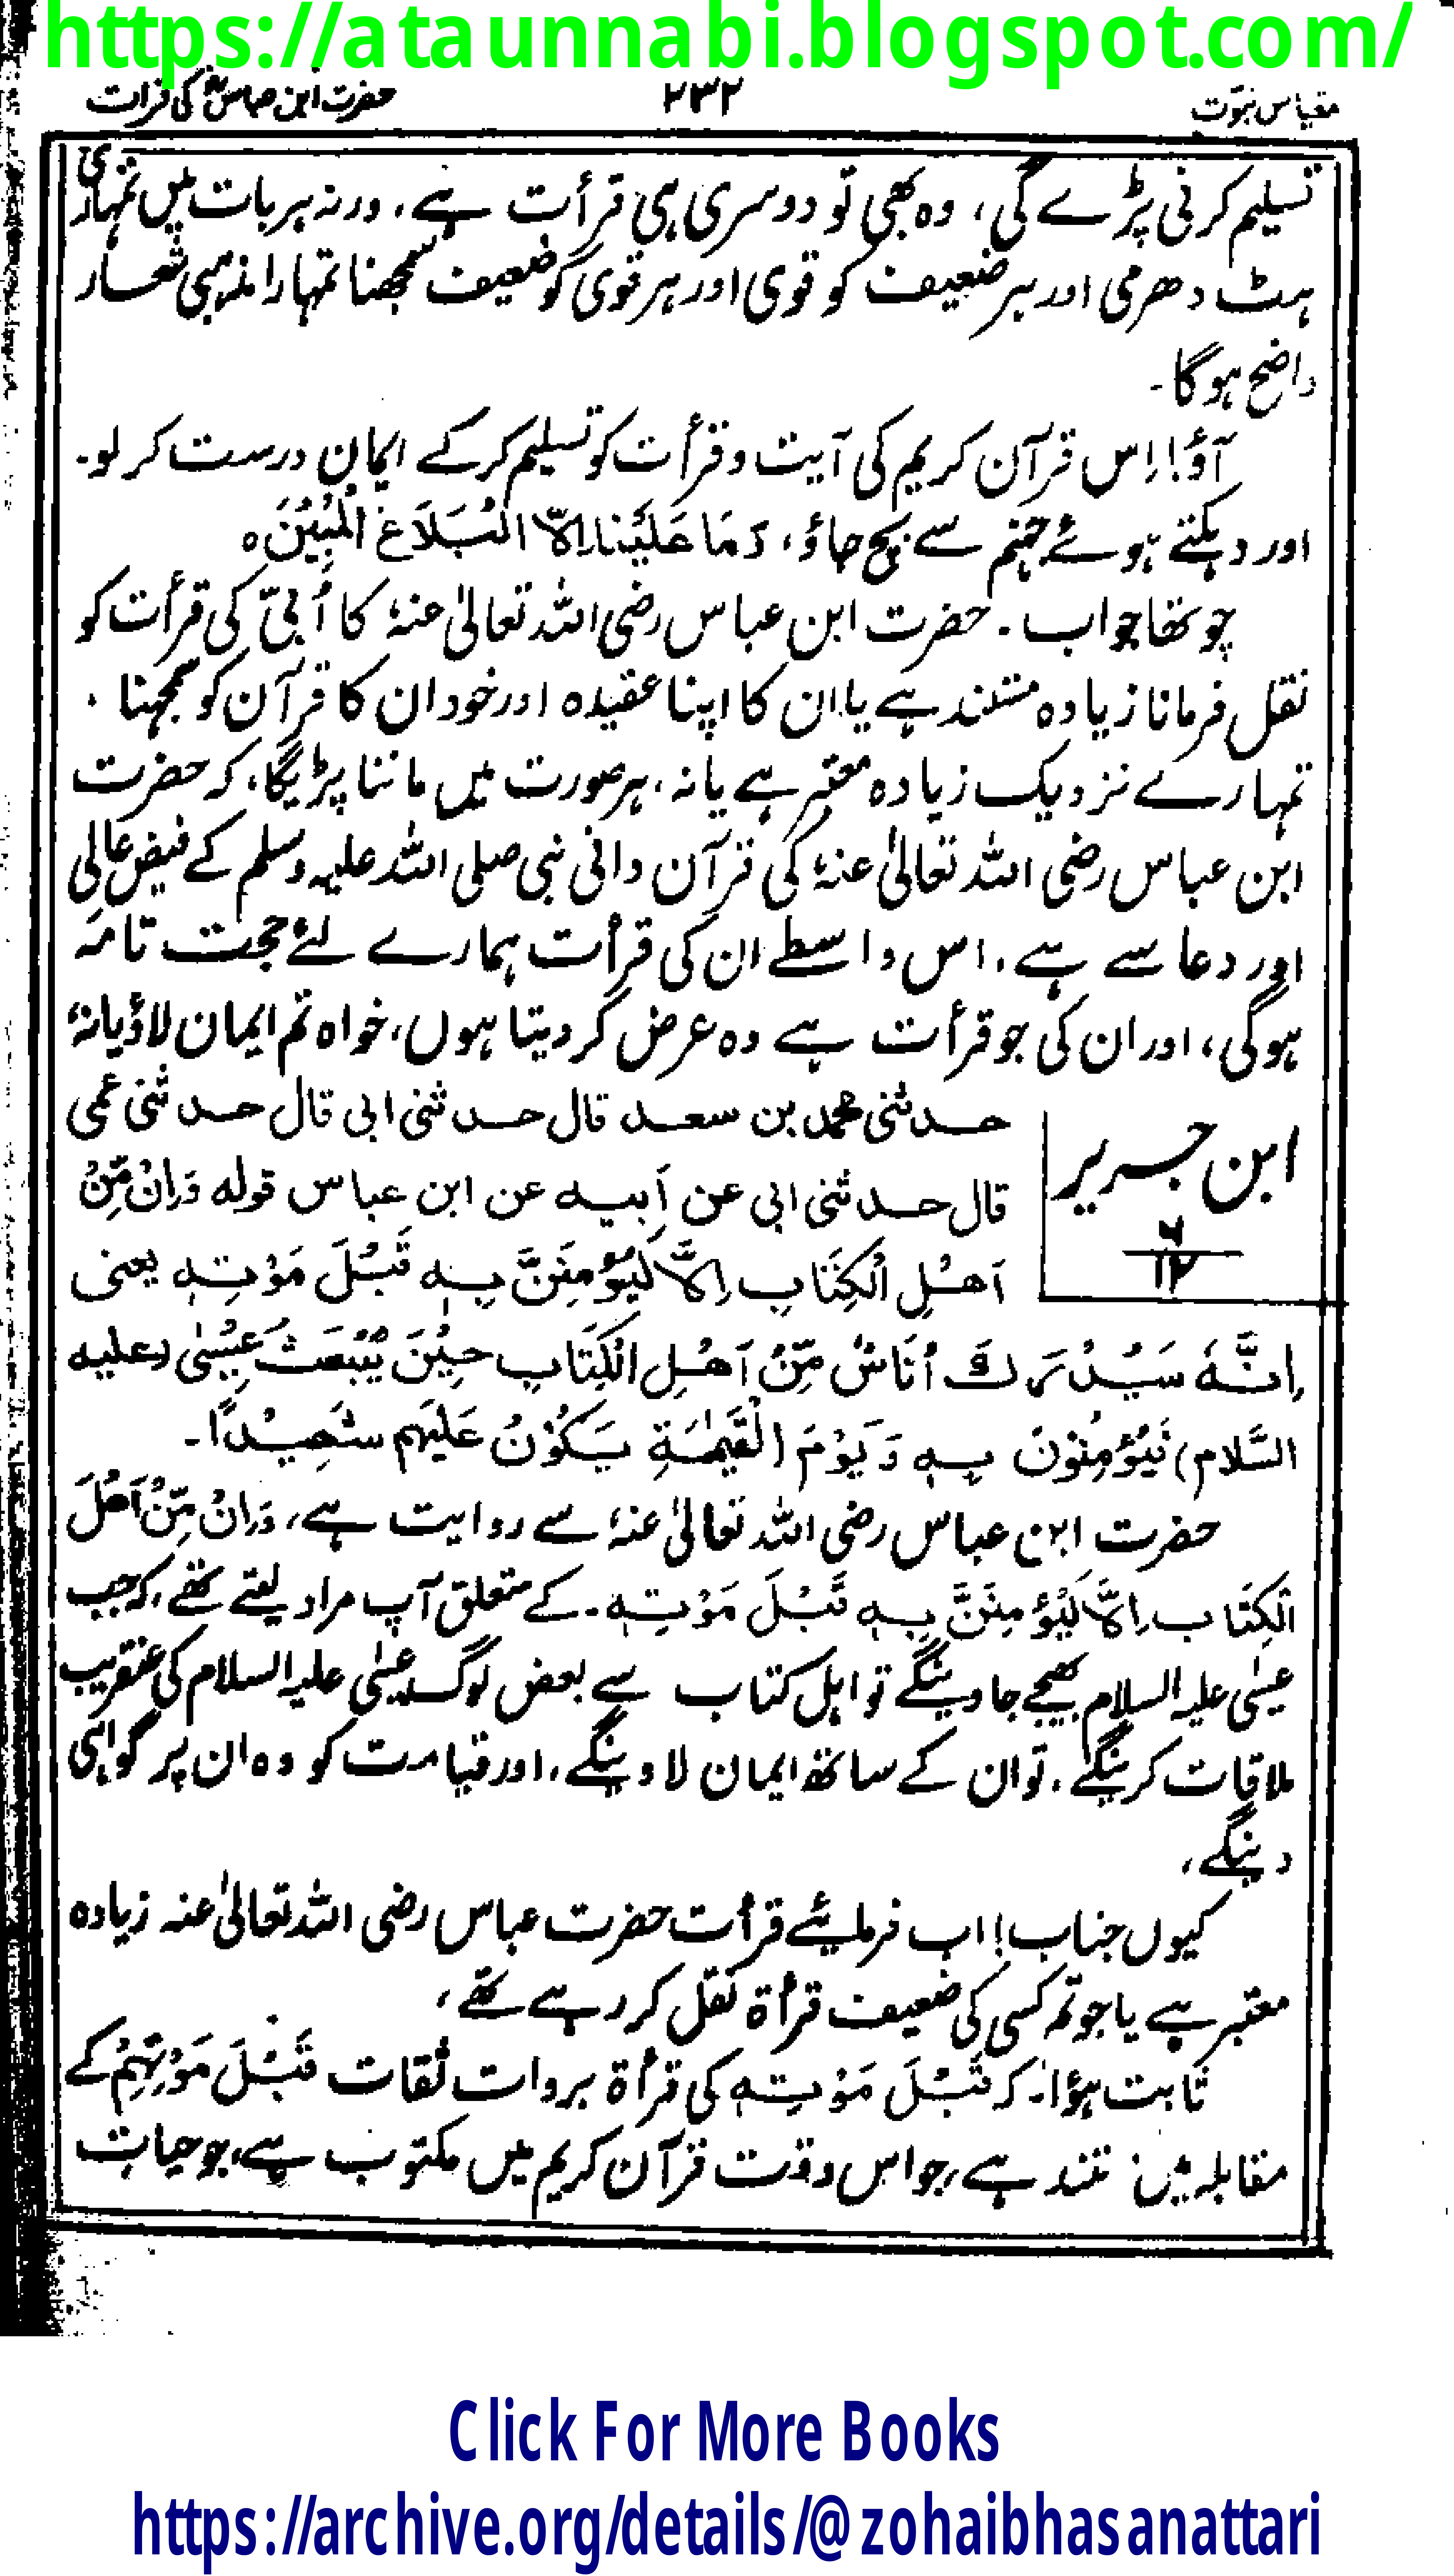 https://ataunnabi.blogspot.com/
مقیاس نبوّت ۲۳۲ حضرت ابن عباسؓ کی قرات
تسلیم کرنی پڑے گی، وہ بھی تو دوسری ہی قرأت ہے، ورنہ ہر بات میں تمہاری
ہٹ دھرمی اور ہر ضعیف کو قوی اور ہر قوی کو ضعیف سمجھنا تمہارا مذہبی شعار
واضح ہوگا۔
آؤ! اِس قرآن کریم کی آیت و قرأت کو تسلیم کرکے ایمان درست کر لو۔
اور دہکتے ہوئے جہنم سے بچ جاؤ، وَمَا عَلَیْنَا اِلَّا الْبَلَاغُ الْمُبِیْنُ ہ
چوتھا جواب۔ حضرت ابن عباس رضی اللہ تعالیٰ عنہٗ کا اُبیّ کی قرأت کو
نقل فرمانا زیادہ مستند ہے یا ان کا اپنا عقیدہ اور خود ان کا قرآن کو سمجھنا،
تمہارے نزدیک زیادہ معتبر ہے یا نہ، ہر صورت میں ماننا پڑیگا، کہ حضرت
ابن عباس رضی اللہ تعالیٰ عنہٗ کی قرآن دانی نبی صلی اللہ علیہ وسلم کے فیض عالی
اور دعا سے ہے، اس واسطے ان کی قرأت ہمارے لئے حجت تامہ
ہوگی، اور ان کی جو قرأت ہے وہ عرض کر دیتا ہوں، خواہ تم ایمان لاؤ یا نہٗ
ابن جریر
۶
۱۲
حدثنی محمد بن سعد قال حدثنی ابی قال حدثنی عمی
قال حدثنی ابی عن اَبیہ عن ابن عباس قولہ وَاِنْ مِّنْ
اَھْلِ الْکِتَابِ اِلَّا لَیُؤْمِنَنَّ بِہٖ قَبْلَ مَوْتِہٖ یعنی
اِنَّہٗ سَیُدْرِکُ اُنَاسٌ مِّنْ اَھْلِ الْکِتَابِ حِیْنَ یُبْعَثُ عِیْسٰی (علیہ
السَّلام) فَیُؤْمِنُوْنَ بِہٖ وَیَوْمَ الْقِیٰمَۃِ یَکُوْنُ عَلَیْہِم شَھِیْدًا۔
حضرت ابن عباس رضی اللہ تعالیٰ عنہٗ سے روایت ہے، وَاِنْ مِّنْ اَھْلَ
الْکِتَابِ اِلَّا لَیُؤْمِنَنَّ بِہٖ قَبْلَ مَوْتِہٖ۔ کے متعلق آپ مراد لیتے تھے، کہ جب
عیسٰی علیہ السلام بھیجے جاوینگے تو اہل کتاب سے بعض لوگ عیسٰی علیہ السلام کی عنقریب
ملاقات کرینگے، تو ان کے ساتھ ایمان لاوینگے، اور قیامت کو وہ ان پر گواہی
دینگے،
کیوں جناب! اب فرمایئے قرأت حضرت عباس رضی اللہ تعالیٰ عنہ زیادہ
معتبر ہے یا جو تم کسی کی ضعیف قرأۃ نقل کر رہے تھے،
ثابت ہؤا۔ کہ قَبْلَ مَوْتِہٖ کی قرأۃ بروات ثقات قَبْلَ مَوْتِہِمْ کے
مقابلہ میں مستند ہے، جو اس وقت قرآن کریم میں مکتوب ہے، جو حیات
Click For More Books
https://archive.org/details/@zohaibhasanattari